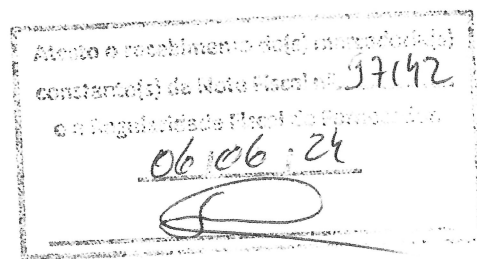 Atesto o recebimento da(s) mercadoria(s)
constante(s) da Nota Fiscal nº 97142
e a Regularidade Fiscal do
06 / 06 / 24